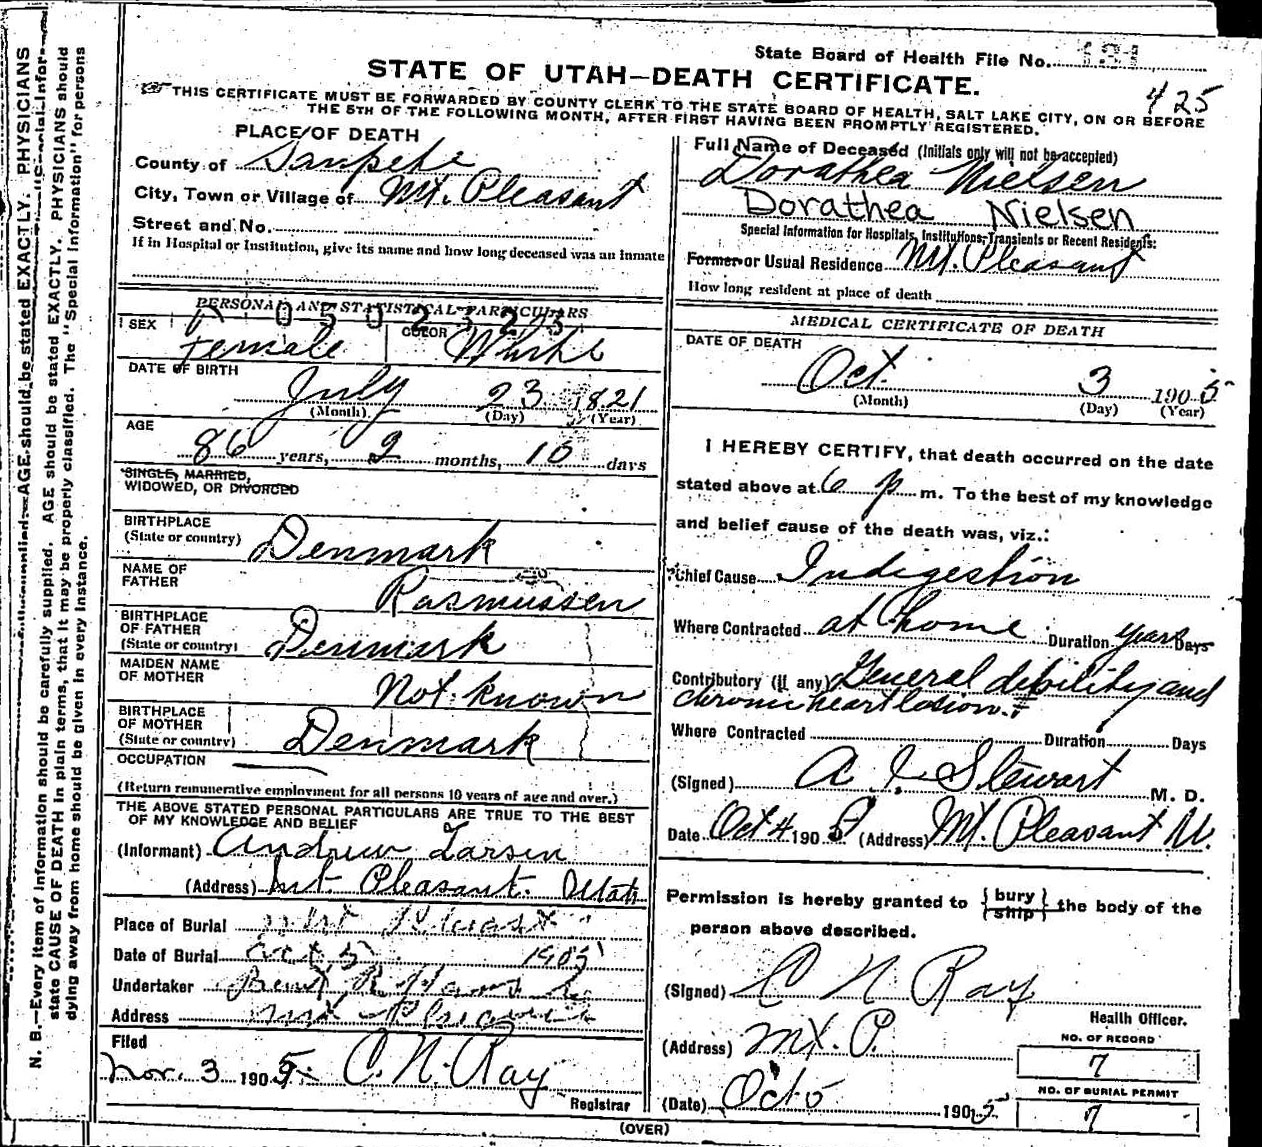 State Board of Health File No. 131
STATE OF UTAH—DEATH CERTIFICATE.
425
THIS CERTIFICATE MUST BE FORWARDED BY COUNTY CLERK TO THE STATE BOARD OF HEALTH, SALT LAKE CITY, ON OR BEFORE
THE 5TH OF THE FOLLOWING MONTH, AFTER FIRST HAVING BEEN PROMPTLY REGISTERED.
PLACE OF DEATH
County of Sanpete
City, Town or Village of Mt. Pleasant
Street and No.
If in Hospital or Institution, give its name and how long deceased was an inmate
PERSONAL AND STATISTICAL PARTICULARS
0502323
SEX Female COLOR White
DATE OF BIRTH
July 23 1821
(Month) (Day) (Year)
AGE
86 years, 2 months, 10 days
SINGLE, MARRIED,
WIDOWED, OR DIVORCED
BIRTHPLACE
(State or country) Denmark
NAME OF
FATHER Rasmussen
BIRTHPLACE
OF FATHER
(State or country) Denmark
MAIDEN NAME
OF MOTHER Not known
BIRTHPLACE
OF MOTHER
(State or country) Denmark
OCCUPATION
(Return remunerative employment for all persons 10 years of age and over.)
THE ABOVE STATED PERSONAL PARTICULARS ARE TRUE TO THE BEST
OF MY KNOWLEDGE AND BELIEF
(Informant) Andrew Larsen
(Address) Mt. Pleasant. Utah
Place of Burial Mt Pleasant
Date of Burial Oct 5 1905
Undertaker
Address Mt Pleasant
Filed
Nov. 3 1905 C. N. Ray
Registrar
Full Name of Deceased (Initials only will not be accepted)
Dorathea Nielsen
Dorathea Nielsen
Special Information for Hospitals, Institutions, Transients or Recent Residents:
Former or Usual Residence Mt. Pleasant
How long resident at place of death
MEDICAL CERTIFICATE OF DEATH
DATE OF DEATH
Oct. 3 1905
(Month) (Day) (Year)
I HEREBY CERTIFY, that death occurred on the date
stated above at 6 p m. To the best of my knowledge
and belief cause of the death was, viz.:
Chief Cause Indigestion
Where Contracted at home Duration years Days
Contributory (if any) General debility and
chronic heart lesion.
Where Contracted Duration Days
(Signed) A. J. Stewart M. D.
Date Oct 4 1905 (Address) Mt. Pleasant U.
Permission is hereby granted to {bury / ship} the body of the
person above described.
(Signed) C N Ray
Health Officer.
(Address) Mt. P.
NO. OF RECORD
7
(Date) Oct 5 1905
NO. OF BURIAL PERMIT
7
(OVER)
N. B.—Every item of information should be carefully supplied. AGE should be stated EXACTLY. PHYSICIANS should
state CAUSE OF DEATH in plain terms, that it may be properly classified. The "Special Information" for persons
dying away from home should be given in every instance.